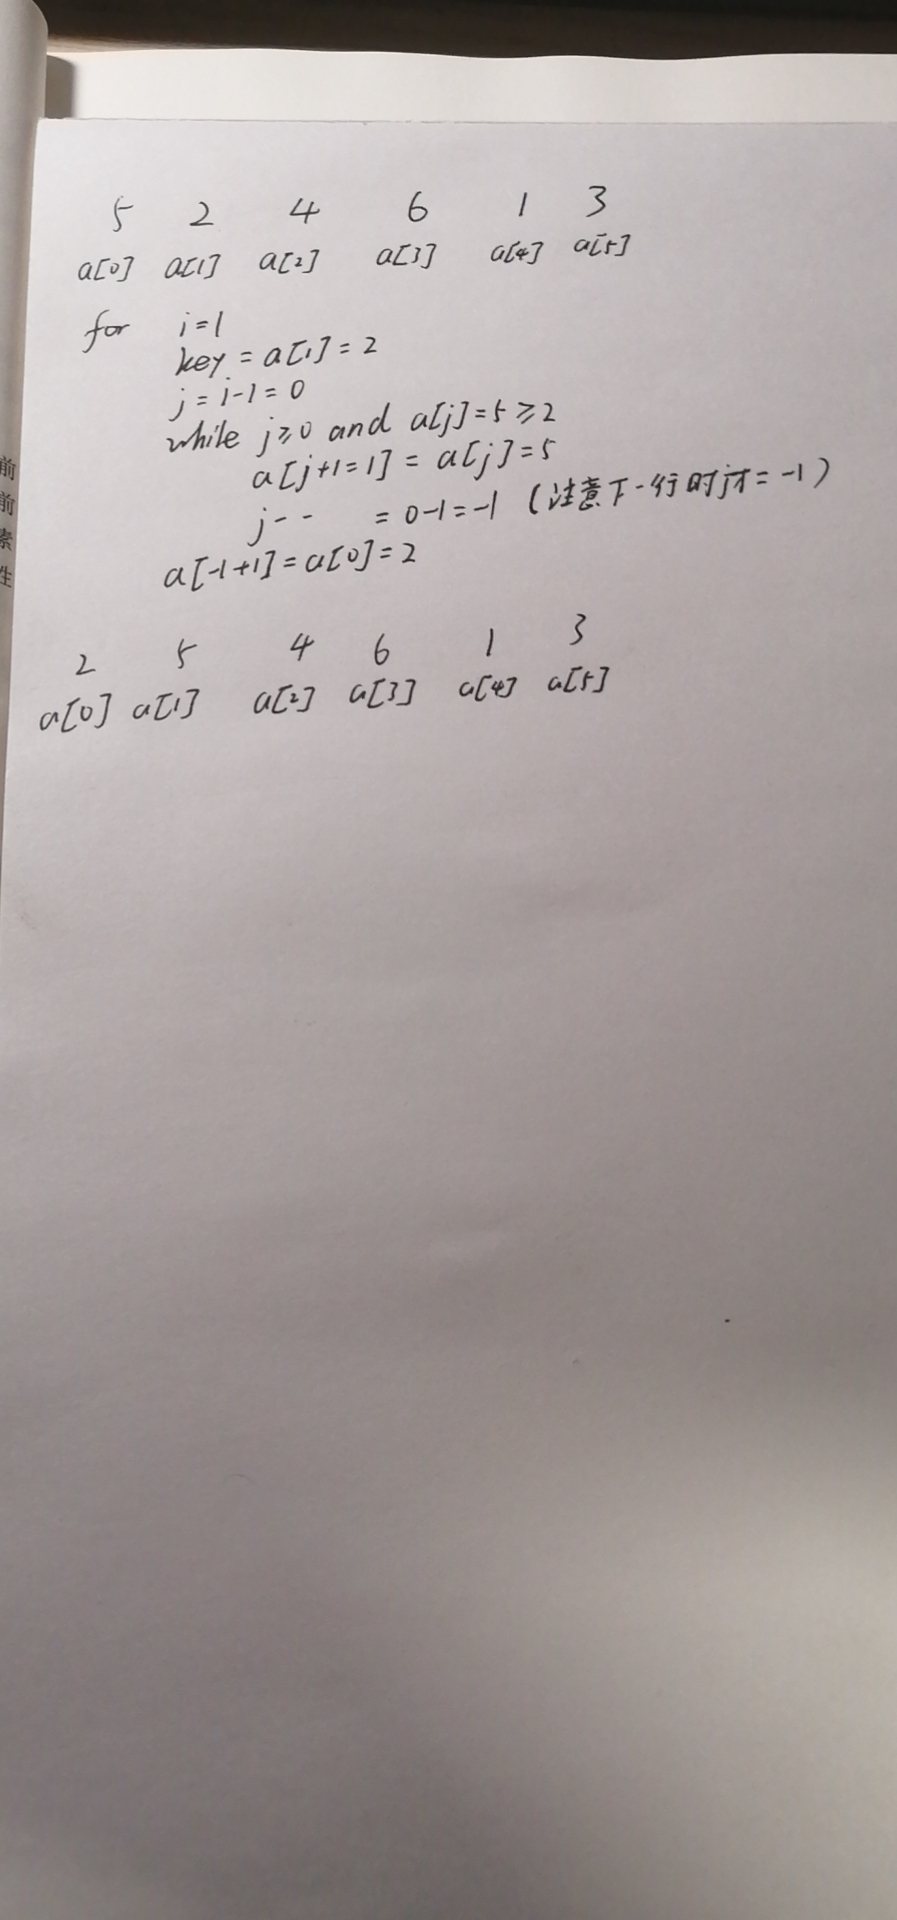 5 2 4 6 1 3
a[0] a[1] a[2] a[3] a[4] a[5]
for i=1
key = a[1] = 2
j = i-1 = 0
while j≥0 and a[j]=5≥2
a[j+1=1] = a[j]=5
j-- = 0-1=-1 (注意下一行时j才=-1)
a[-1+1]=a[0]=2
2 5 4 6 1 3
a[0] a[1] a[2] a[3] a[4] a[5]
前
前
素
性